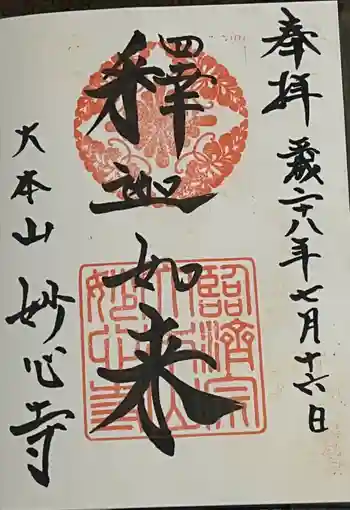 奉拝
平成二十八年七月十六日
釋迦如来
臨濟宗
大本山
妙心寺
大本山
妙心寺